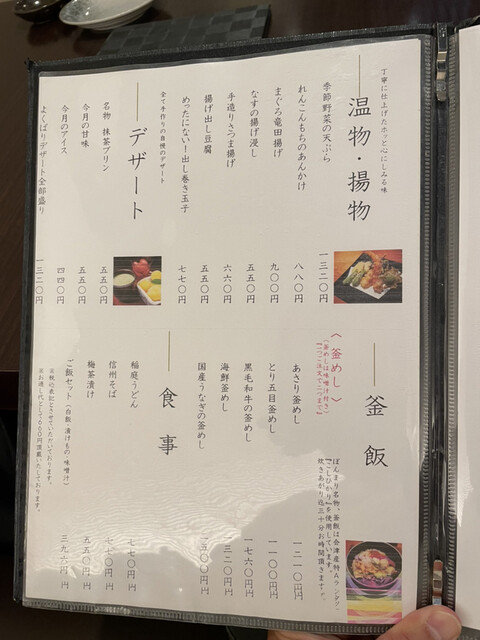 丁寧に仕上げたホッと心にしみる味
温物・揚物
季節野菜の天ぷら 一三二〇円
れんこんもちのあんかけ 八八〇円
まぐろ竜田揚げ 九〇〇円
なすの揚げ浸し 五五〇円
手造りさつま揚げ 六六〇円
揚げ出し豆腐 五五〇円
めったにない！出し巻き玉子 七七〇円
全て手作りの自慢のデザート
デザート
名物 抹茶プリン 五五〇円
今月の甘味 五五〇円
今月のアイス 四四〇円
よくばりデザート全部盛り 一三二〇円
釜飯
ぼんまり名物、釜飯は会津産特Aランク
『こしひかり』を使用しています。
炊きあがり迄三十分お時間頂きます。
〈釜めし〉
（釜めしは味噌汁付き）
あさり釜めし 一二一〇円
とり五目釜めし 一一〇〇円
黒毛和牛の釜めし 一七六〇円
海鮮釜めし 一三二〇円
国産うなぎの釜めし
食事
稲庭うどん 七七〇円
信州そば 七七〇円
梅茶漬け 五五〇円
ご飯セット（白飯 漬けもの・味噌汁） 三九六円
※税込表記とさせていただいております。
※お通し代として660円頂戴いたしております。